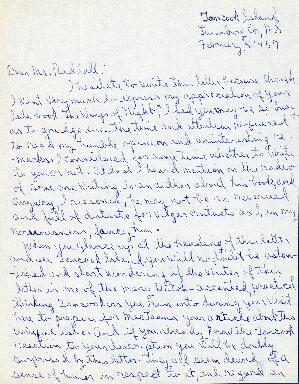 Tancook Island
Lunenburg Co., N.S.
February 5, 1947
Dear Mr. Raddall:
I hesitate to write this letter because though
I want very much to express my appreciation of your
late book "The Wings of Night", I feel
as to grudge even the time and attention required
to read my humble opinion and uninteresting re-
marks. I considered for some time whether to write
to you or not. I had heard mention on the radio
of some one writing to an author about his books and
anyway, I reasoned, he may not be so reserved
and full of distaste for vulgar contacts as I, in my
nervousness, fancy him.
When you glance up at the heading of this letter
and see Tancook Island, you will no doubt be aston-
ished and start wondering if the writer of this
letter is one of the many
Tancookers you ran into during your visit
here to prepare for Macleans your article about this
unique island. And if you already know the Tancook
reaction to your description you will be doubly
surprised by this letter. They all seem devoid of a
sense of humor in respect to it, and regard an